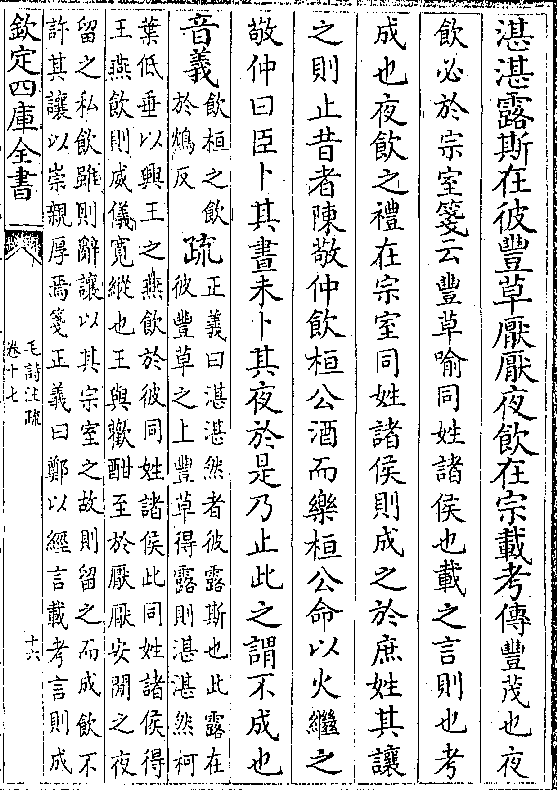 湛湛露斯在彼豐草厭厭夜飲在宗載考傳豐茂也夜
飲必於宗室箋云豐草喻同姓諸侯也載之言則也考
成也夜飲之禮在宗室同姓諸侯則成之於庶姓其讓
之則止昔者陳敬仲飲桓公酒而樂桓公命以火繼之
敬仲曰臣卜其晝未卜其夜於是乃止此之謂不成也
音義
飲桓之飲
於鴆反
疏
正義曰湛湛然者彼露斯也此露在
彼豐草之上豐草得露則湛湛然柯
葉低垂以興王之燕飲於彼同姓諸侯此同姓諸侯得
王燕飲則威儀寬縱也王與歡酣至於厭厭安閒之夜
留之私飲雖則辭讓以其宗室之故則留之而成飲不
許其讓以崇親厚焉箋正義曰鄭以經言載考言則成
欽定四庫全書
毛詩注疏
卷十七
十六